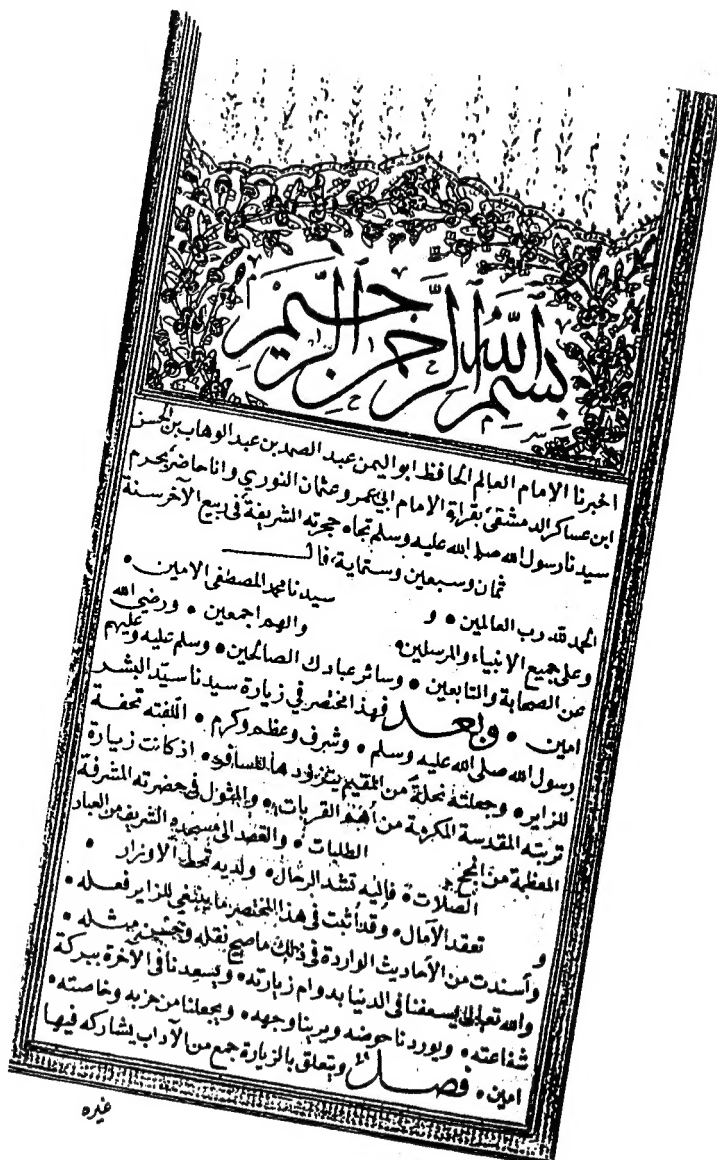 بسم الله الرحمن الرحيم
اخبرنا الامام العالم الحافظ ابو اليمن عبد الصمد بن عبد الوهاب بن الحسن
ابن عساكر الدمشقي بقراة الامام ابي عمرو عثمان النوري وانا حاضر بحرم
سيدنا رسول الله صلى الله عليه وسلم تجاه حجرته الشريفة، في ربيع الآخر سنة
ثمان وسبعين وستماية، قال
الحمد لله رب العالمين • و سيدنا محمد المصطفى الامين •
وعلى جميع الانبياء والمرسلين • والهم اجمعين • ورضي الله
عن الصحابة والتابعين • وسائر عبادك الصالحين • وسلم عليه وعليهم
امين • وبعد فهذا مختصر في زيارة سيدنا سيد البشر
رسول الله صلى الله عليه وسلم • وشرف وعظم وكرم • اللفته تحفة
للزاير • وجعلته نحلة من المقيم يتزود ها المسافر • اذ كانت زيارة
تربته المقدسة المكرمة من اهم القربات • والمثول في حضرته المشرفة
المعظمة من انجح الطلبات • والقصد الى مسجده الشريف من العباد
الصلات • فاليه تشد الرحال • ولديه تحط الاوزار •
و تعقد الآمال • وقد أثبت في هذا المختصر ما ينبغي للزاير فعله •
وأسندت من الأحاديث الواردة في ذلك ما صح نقله وتحسن مثله •
والله تعالى يسعفنا في الدنيا بدوام زيارته • ويسعدنا في الآخرة ببركة
شفاعته • ويوردنا حوضه ويرينا وجهه • ويجعلنا من حزبه وخاصته •
امين • فصل ويتعلق بالزيارة جمع من الآداب يشاركه فيها
غيره